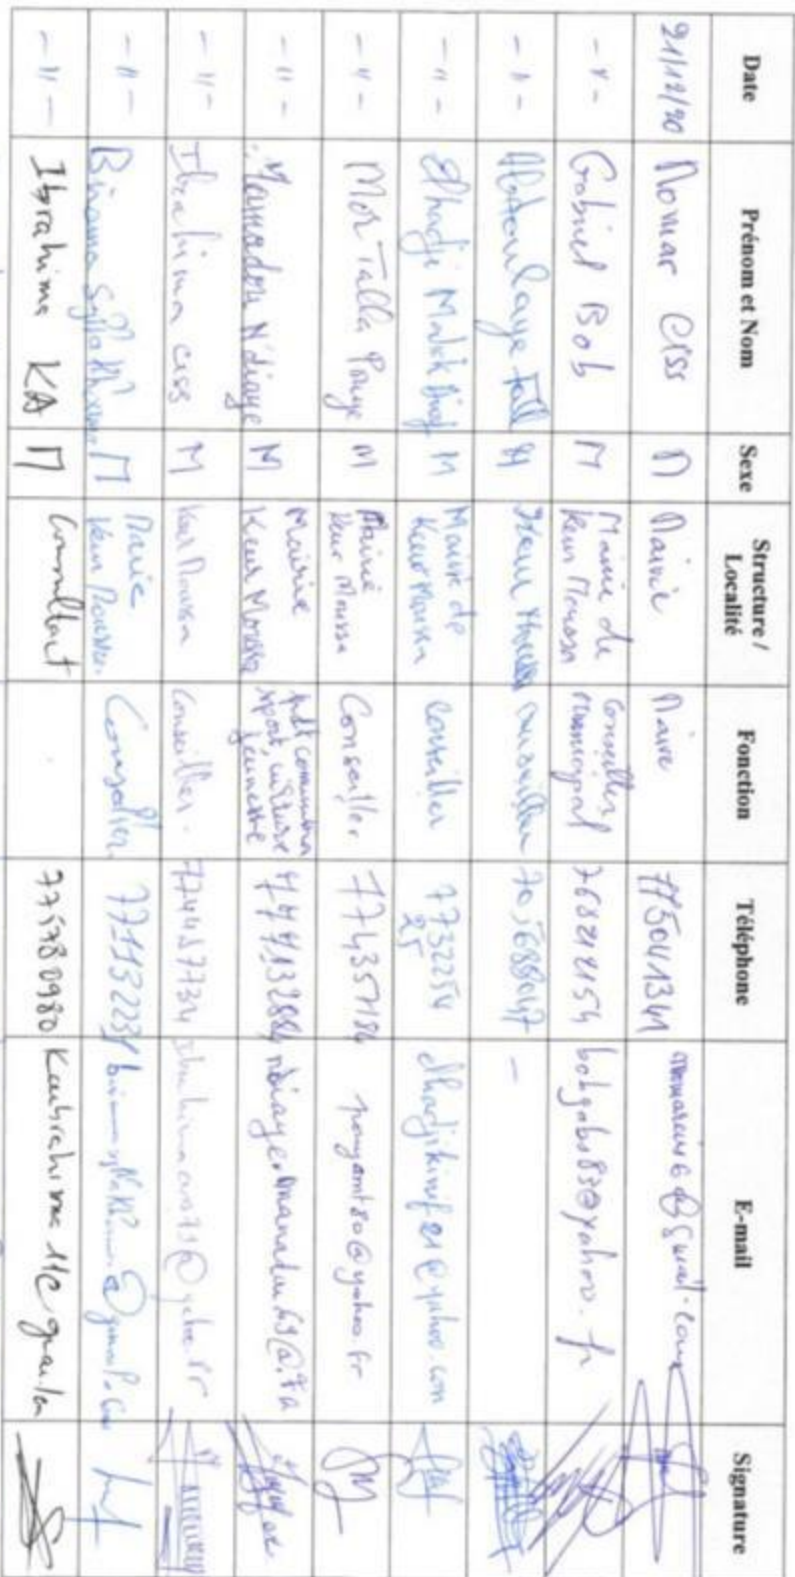 Date Prénom et Nom Sexe Structure / Localité Fonction Téléphone E-mail Signature
21/12/20 Momar CISS M Mairie Maire 775041341
-"- Gabriel Bob M Mairie de Keur Moussa Conseiller municipal 768212154 bobgabs83@yahoo.fr
-"- Abdoulaye Fall M Keur Moussa conseiller 705688047 -
-"- Elhadji Malick Diouf M Mairie de Keur Moussa conseiller 7732254 25 elhadjikinif21@yahoo.com
-"- Mor Talla Pouye M Mairie Keur Moussa Conseiller 774357184 pouyemt80@yahoo.fr
-"- Mamadou N'diaye M Mairie Keur Moussa pdt commission sport, culture jeunesse 777132884
-"- Ibrahima ciss M Keur Moussa Conseiller. 774457734
-"- Birama Sylla M Mairie Keur Moussa Conseiller. 771132231
-"- Ibrahima KA M Consultant 775780980